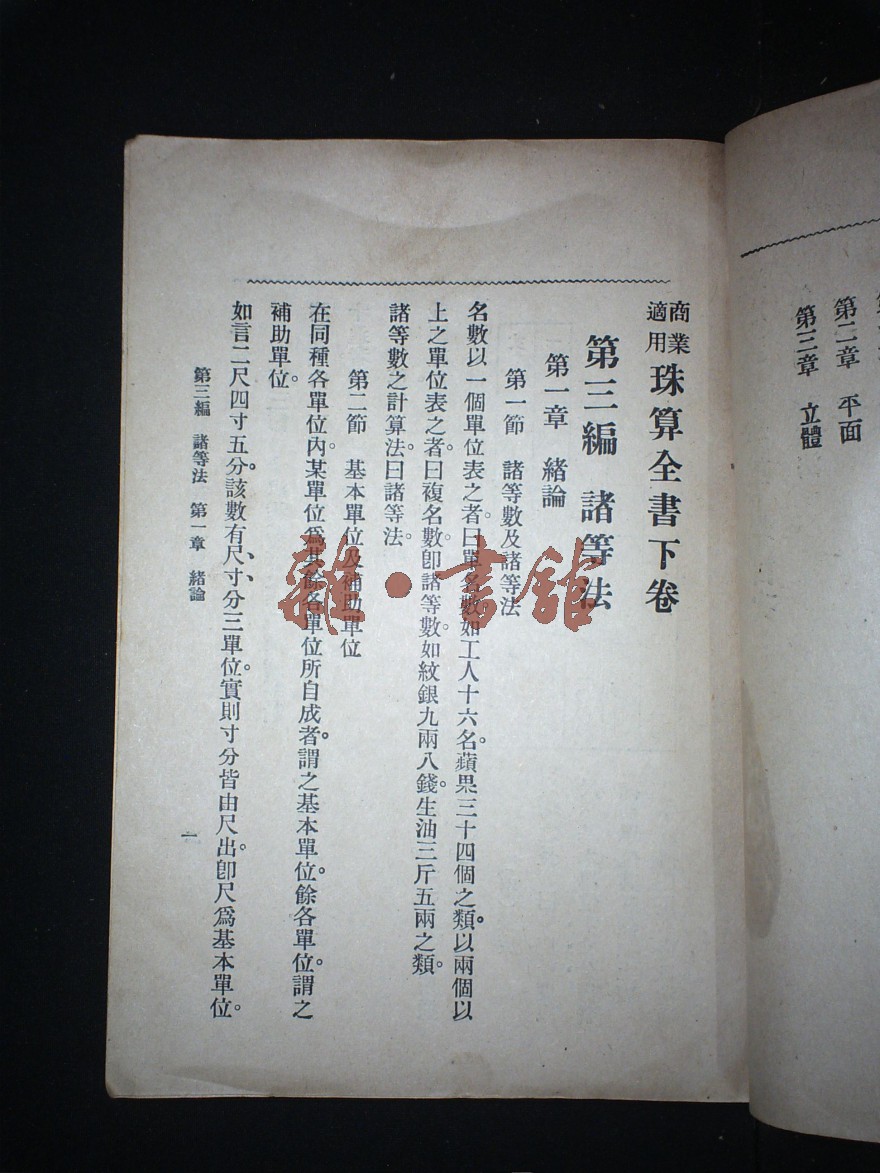 第二章　平面
第三章　立體
商業適用珠算全書下卷
第三編　諸等法
第一章　緒論
第一節　諸等數及諸等法
名數以一個單位表之者。曰單名數如工人十六名。蘋果三十四個之類。以兩個以
上之單位表之者。曰複名數。卽諸等數。如紋銀九兩八錢。生油三斤五兩之類。
諸等數之計算法。曰諸等法。
第二節　基本單位及補助單位
在同種各單位內。某單位爲其餘各單位所自成者。謂之基本單位。餘各單位。謂之
補助單位。
如言二尺四寸五分。該數有尺、寸、分三單位。實則寸分皆由尺出。卽尺爲基本單位。
第三編　諸等法　第一章　緒論
一
雜·書館